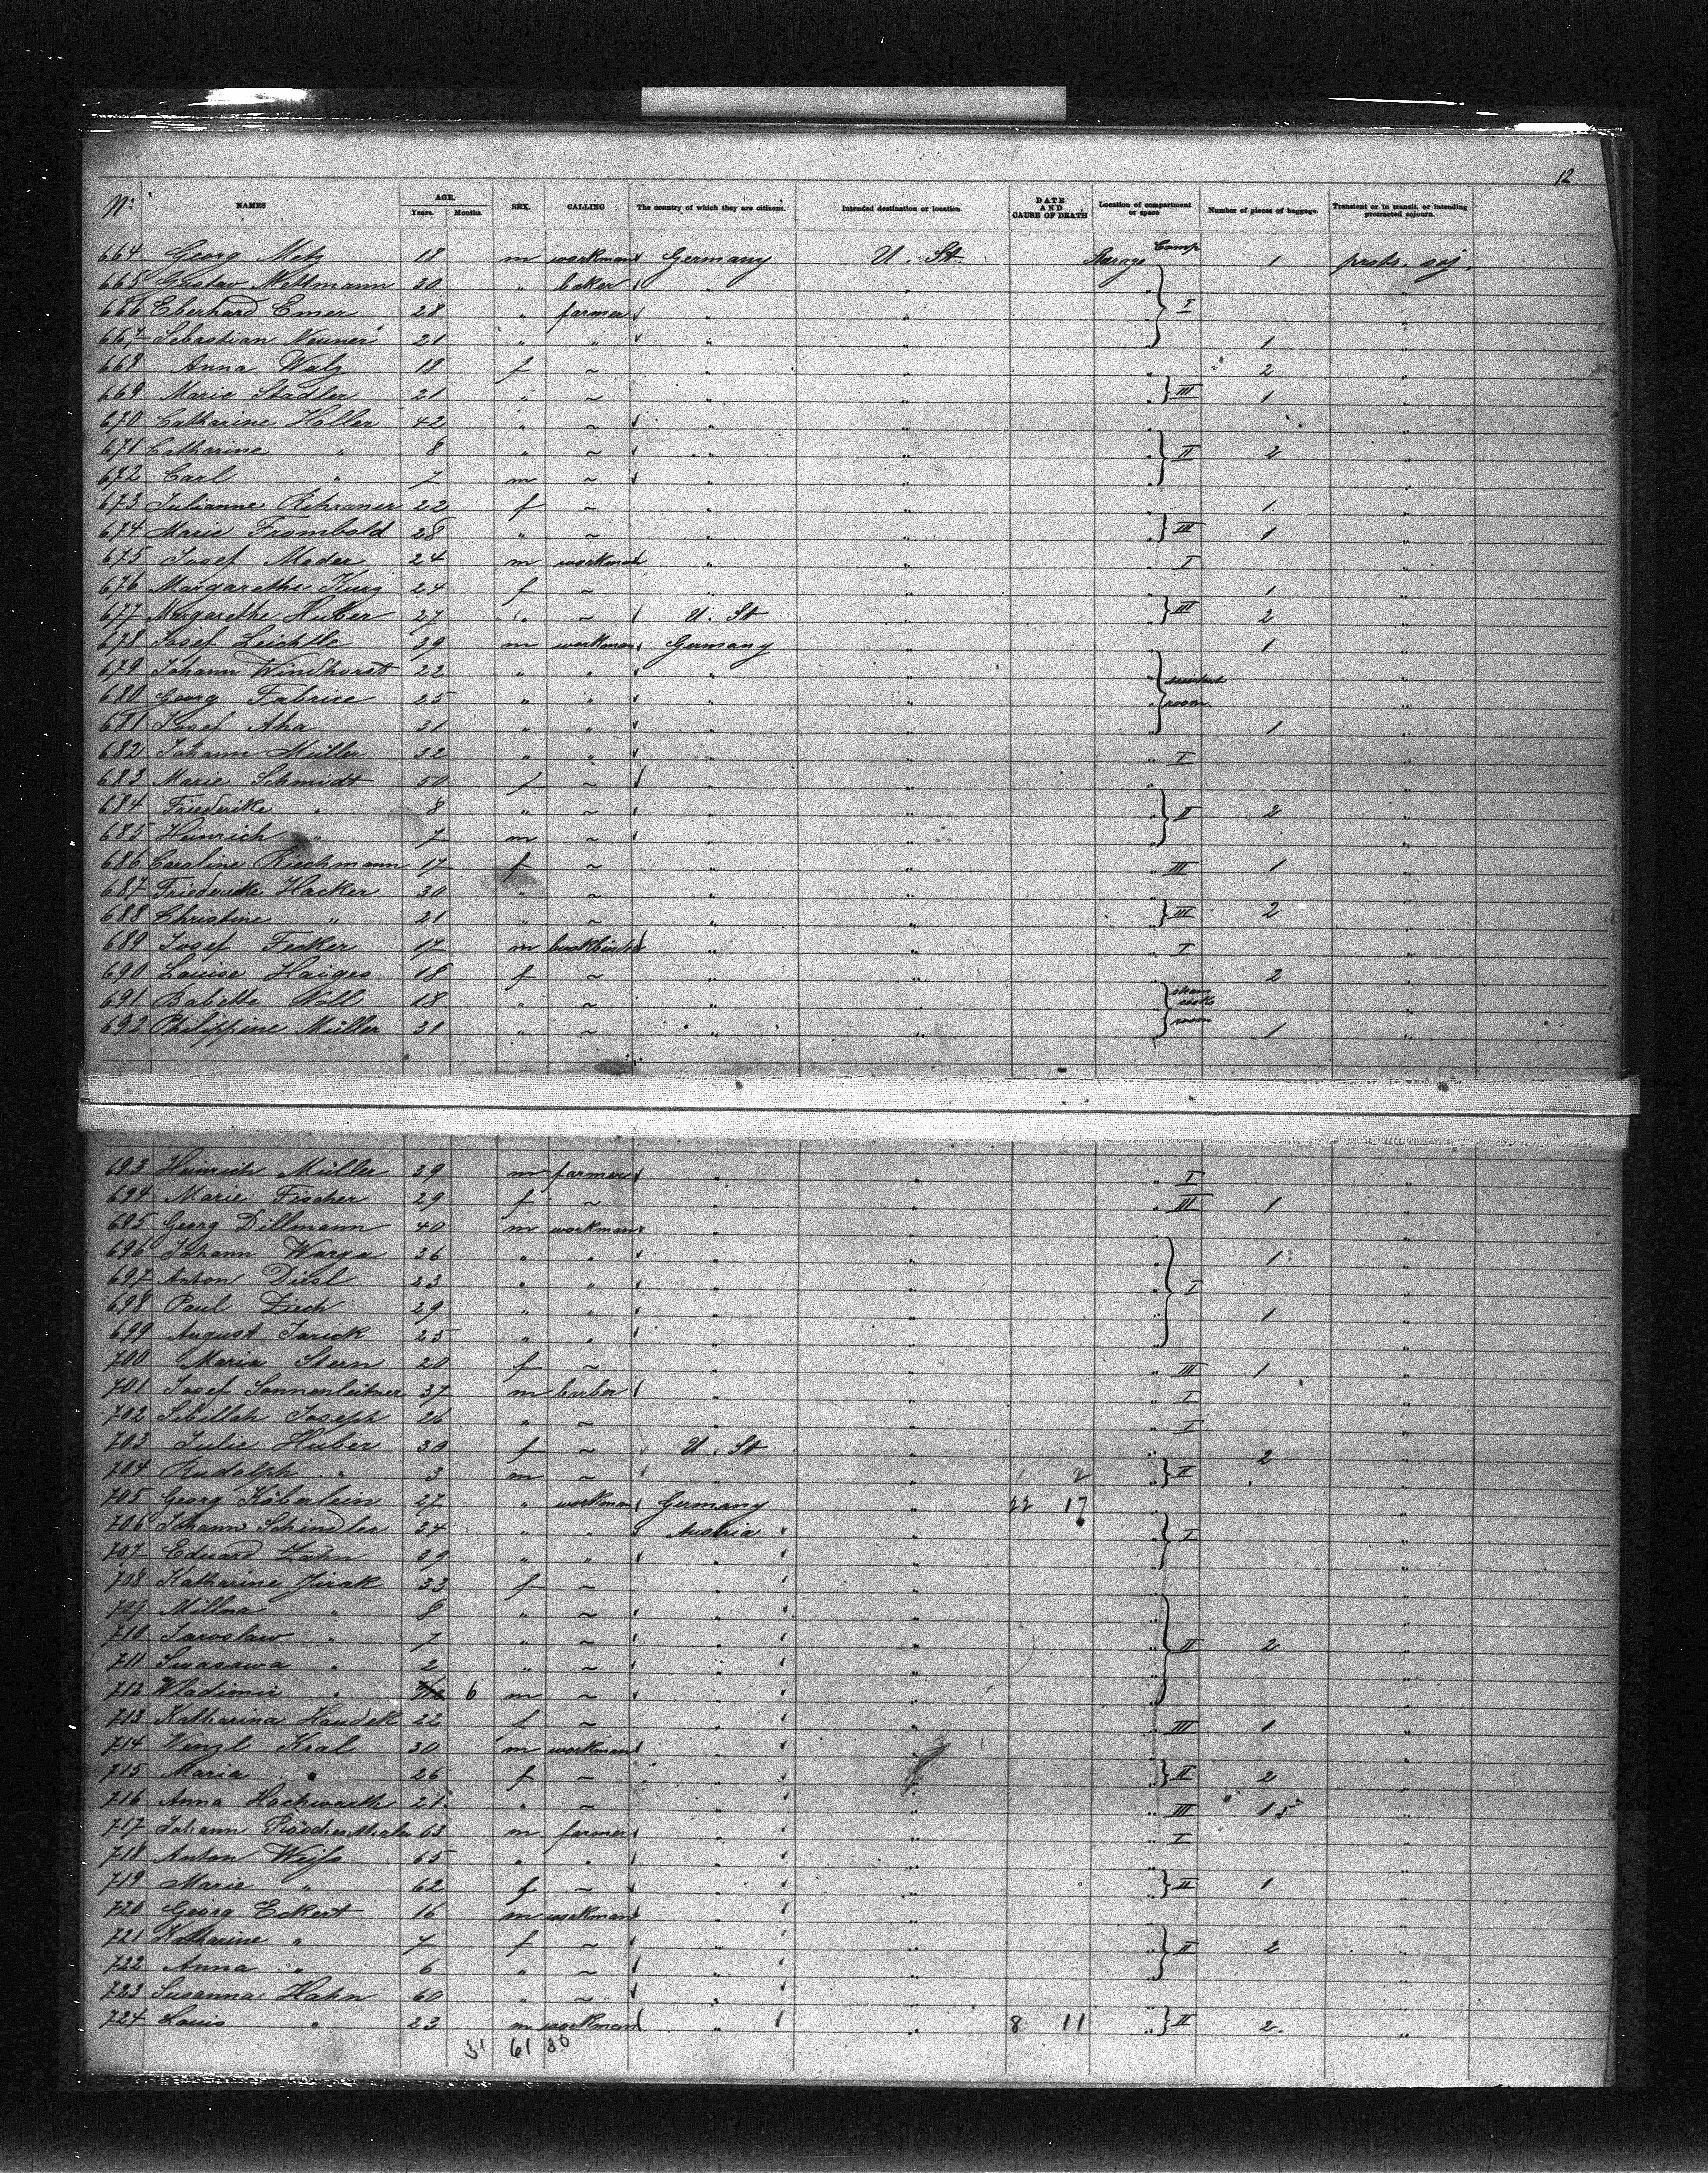 12
No: NAMES AGE. Years. Months. SEX. CALLING The country of which they are citizens. Intended destination or location. DATE AND CAUSE OF DEATH Location of compartment or space Number of pieces of baggage. Transient or in transit, or intending protracted sojourn.
664 Georg Metz 18 m workman Germany U. St. Comp 1 protr. soj.
665 Gustav 30 " baker " " " "
666 Eberhard Emer 28 " farmer " " " I "
667 Sebastian Neuner 21 " " " " " 1 "
668 Anna Walz 18 f ~ " " " 2 "
669 Marie Stadler 21 " ~ " " " III 1 "
670 Catharine Holler 42 " ~ " " " "
671 Catharine " 8 " ~ " " " II 2 "
672 Carl " 7 m ~ " " " "
673 Julianne 22 f ~ " " " 1 "
674 Marie Frombold 28 " ~ " " " III 1 "
675 Josef Mader 24 m workman " " " I "
676 Margarethe Kurz 24 f ~ " " " 1 "
677 Margarethe Huber 27 " ~ U. St " " III 2 "
678 Josef Leichtle 39 m workman Germany " " 1 "
679 Johann Windhorst 22 " " " " " "
680 Georg Fabrice 25 " " " " " room "
681 Josef Aha 31 " " " " " 1 "
682 Johann Müller 32 " " " " " I "
683 Marie Schmidt 50 f ~ " " " "
684 Friederike " 8 " ~ " " " II 2 "
685 Heinrich " 7 m ~ " " " "
686 Caroline Riechmann 17 f ~ " " " III 1 "
687 Friederike Hacker 30 " ~ " " " "
688 Christine " 21 " ~ " " " III 2 "
689 Josef Fecker 17 m bookbinder " " " I "
690 Louise Haiges 18 f ~ " " " 2 "
691 Babette Voll 18 " ~ " " " "
692 Philippine Müller 31 " ~ " " " room 1 "
693 Heinrich Müller 39 m farmer " " " I "
694 Marie Fischer 29 f ~ " " " III 1 "
695 Georg Dillmann 40 m workman " " " "
696 Johann Warga 36 " " " " " 1 "
697 Anton Diesl 23 " " " " " I "
698 Paul Ziech 29 " " " " " 1 "
699 August Jarick 25 " " " " " "
700 Maria Stern 20 f ~ " " " III 1 "
701 Josef Sonnenleitner 37 m barber " " " I "
702 Sibillah Joseph 26 " ~ " " " I "
703 Julie Huber 30 f ~ U. St " " 2 "
704 Rudolph " 3 m ~ " " " II "
705 Georg Köberlein 27 " workman Germany " 22 17 " "
706 Johann Schindler 34 " " Austria " " I "
707 Eduard Zahn 39 " " " " " "
708 Katharine Jirak 33 f ~ " " " "
709 Millna " 8 " ~ " " " "
710 Jaroslaw " 7 " ~ " " " II 2 "
711 " 2 " ~ " " " "
712 Wladimir " 6 m ~ " " " "
713 Katharina Haudek 22 f ~ " " " III 1 "
714 Wenzl Kral 30 m workman " " " "
715 Maria " 26 f ~ " " " II 2 "
716 Anna Hochwarth 21 " ~ " " " III 1 5 "
717 Johann 63 m farmer " " " I "
718 Anton Weiss 65 " " " " " "
719 Marie " 62 f ~ " " " II 1 "
720 Georg Eckert 16 m workman " " " "
721 Katharine " 7 f ~ " " " II 2 "
722 Anna " 6 " ~ " " " "
723 Susanna Hahn 60 " ~ " " " "
724 Louis " 23 m workman " " 8 11 " II 2 "
31 61 30